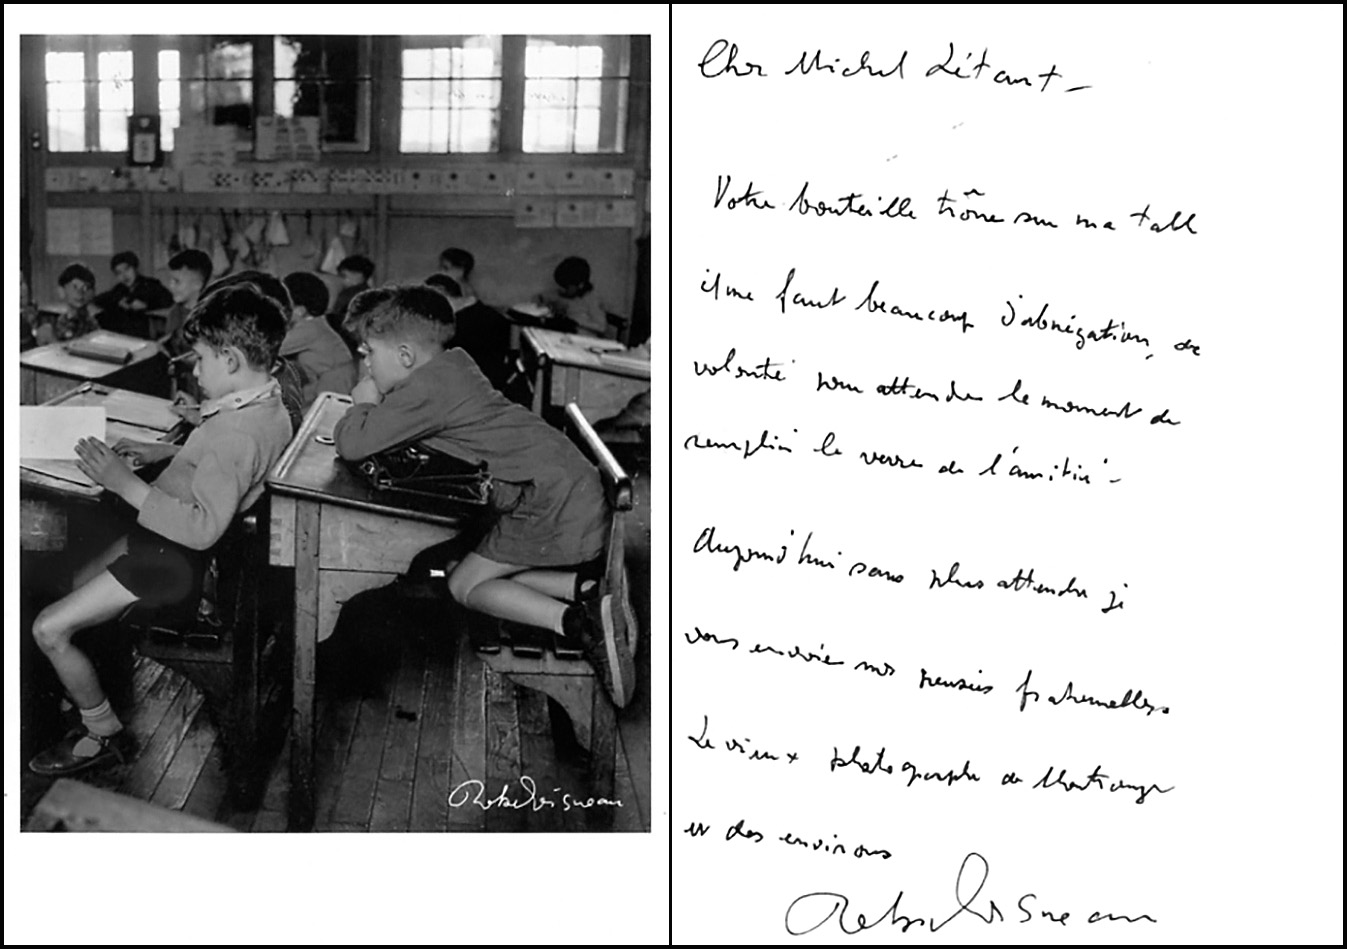 Robert Doisneau
Cher Michel Létant –
Votre bouteille trône sur ma table
il me faut beaucoup d'abnégation, de
volonté pour attendre le moment de
remplir le verre de l'amitié –
Aujourd'hui sans plus attendre je
vous envoie mes pensées fraternelles.
Le vieux photographe de Montrouge
et des environs
Robert Doisneau